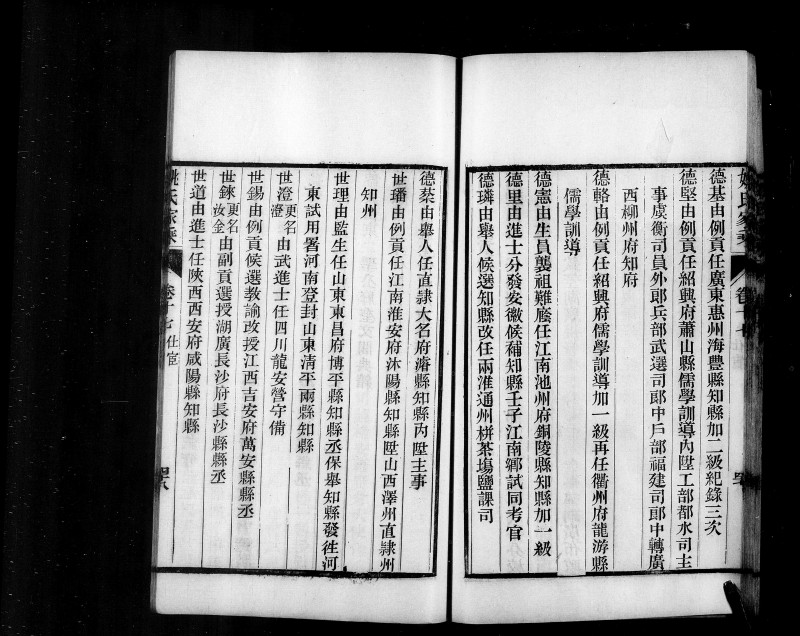 德基由例貢任廣東惠州海豐縣知縣加二級紀錄三次
德堅由例貢任紹興府蕭山縣儒學訓導內陞工部都水司主
事虞衡司員外郎兵部武選司郎中戶部福建司郎中轉廣
西柳州府知府
德輅由例貢任紹興府儒學訓導加一級再任衢州府龍游縣
儒學訓導
德憲由生員襲祖難廕任江南池州府銅陵縣知縣加一級
德里由進士分發安徽候補知縣壬子江南鄉試同考官
德璘由舉人候選知縣改任兩淮通州栟茶塲鹽課司
德棻由舉人任直隷大名府濬縣知縣內陞主事
世璠由例貢任江南淮安府沐陽縣知縣陞山西澤州直隷州
知州
世理由監生任山東東昌府博平縣知縣丞保舉知縣發徃河
東試用署河南登封山東淸平兩縣知縣
世澄更名澄由武進士任四川龍安營守備
世錫由例貢候選教諭改授江西吉安府萬安縣縣丞
世錸更名汝金由副貢選授湖廣長沙府長沙縣縣丞
世道由進士任陝西西安府咸陽縣知縣
姚氏家乘
卷十七 仕宦